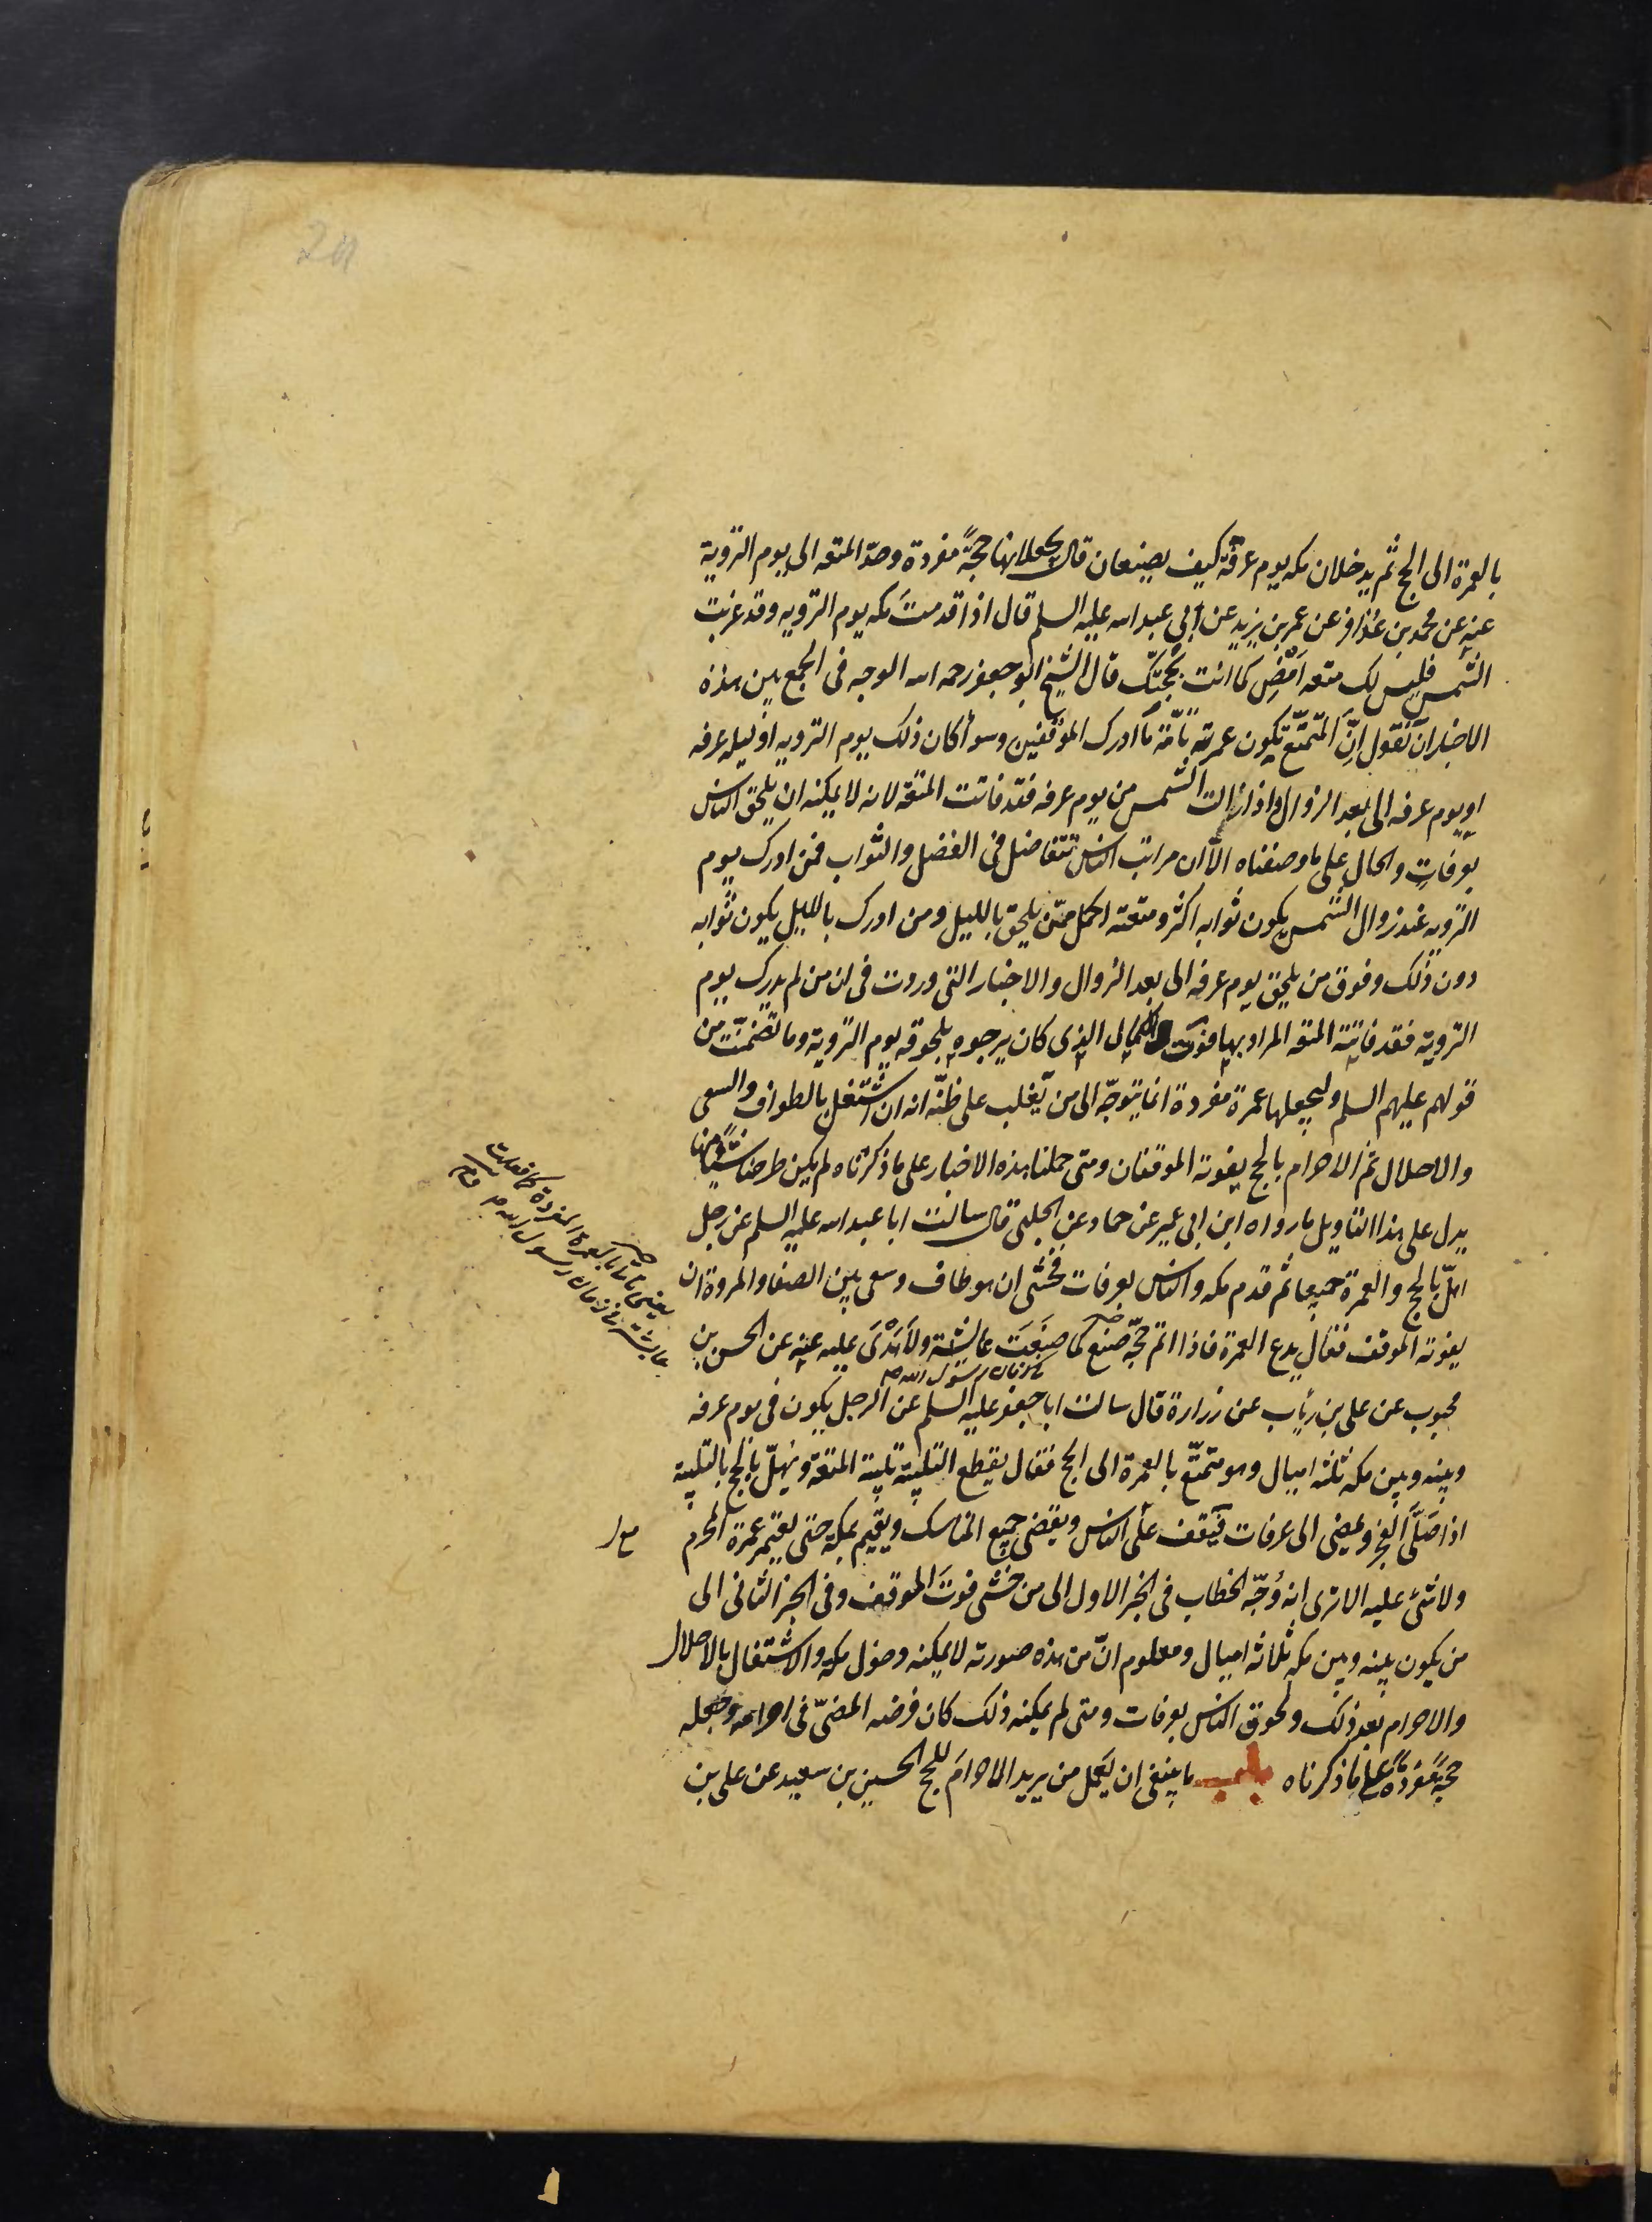 بالعمرة الى الحج ثم يدخلان مكه يوم عرفة كيف يصنعان قال يجعلانها حجّةً مفردة وحدّ المتعه الى يوم التروية
عنه عن محمد بن عذافر عن عمر بن يزيد عن ابي عبد اسه عليه السلم قال اذا قدمتَ مكه يوم الترويه وقد غربت
الشمس فليس لك متعه اَمْضِ كما انت بحجّك قال الشيخ ابو جعفر رحمه اسه الوجه فى الجمع بين هذه
الاخبار ان نقول اِنّ المتمتّع تكون عمرته تامّة ما ادرك الموقفين وسواً كان ذلك يوم الترويه او ليله عرفه
او يوم عرفه الى بعد الزوال واذا زالت الشمس من يوم عرفه فقد فاتت المتعة لانه لا يمكنه ان يلحق الناس
بعرفاتٍ والحال على ما وصفناه الّا ان مراتب الناس تتفاضل فى الفضل والثواب فمن ادرك يوم
الترويه عند زوال الشمس يكون ثوابه اكثر ومتعته اكمل ممّن يلحق بالليل ومن ادرك بالليل يكون ثوابه
دون ذلك وفوق من يلحق يوم عرفه الى بعد الزوال والاخبار التى وردت فى ان من لم يدرك يوم
التروية فقد فاتته المتعه المراد بها فوت الكمال الذى كان يرجوه بلحوقه يوم التروية وما تضمنّت من
قولهم عليهم السلم وليجعلها عمرة مفردة انما يتوجّه الى من يغلب على ظنّه انه ان اشتغل بالطواف والسعى
والاحلال ثم الاحرام بالحج يفوته الموقفان ومتى حملنا هذه الاخبار على ما ذكرناه لم يكن طرحنا شيئاً منها
يدل على هذا التاويل ما رواه ابن ابى عمير عن حماد عن الحلبى قال سالت ابا عبد اسه عليه السلم عن رجل
اهلّ بالحج والعمرة جميعا ثم قدم مكه والناس بعرفات فخشى ان هو طاف وسعى بين الصفا والمروة ان
يفوته الموقف فقال يدع العمرة فاذا اتم حجّه صنع كما صنعَت عايشة ولا هَدْىَ عليه عنه عن الحسن بن
محبوب عن على بن رئاب عن زرارة قال سالت ابا جعفر عليه السلم عن الرجل يكون فى يوم عرفه
وبينه وبين مكه ثلثه اميال وهو متمتّع بالعمرة الى الحج فقال يقطع التلبية تلبية المتعة ويُهِلّ بالحج بالتلبية
اذا صَلّى الفجر ويمضى الى عرفات فيقف على الناس ويقضى جميع المناسك ويقيم بمكة حتى يعتمر عمرة المحرم
ولا شىٔ عليه الا ترى انه وُجّه الخطاب فى الخبر الاول الى من خشى فوتَ الموقف وفى الخبر الثانى الى
من يكون بينه وبين مكه ثلاثه اميال ومعلوم انّ من هذه صورته لا يمكنه دخول مكة والاشتغال بالاحلال
والاحرام بعد ذلك ولحوق الناس بعرفات ومتى لم يمكنه ذلك كان فرضه المضىّ فى احرامه وجعله
حجةً مفردةً على ما ذكرناه باب ما ينبغى ان يَعمل من يريد الاحرامَ للحج الحسين بن سعيد عن على بن
مع
يعنى ياتى بالعمرة المفردة كما فعلت
عايشة فى زمان رسول الله ص